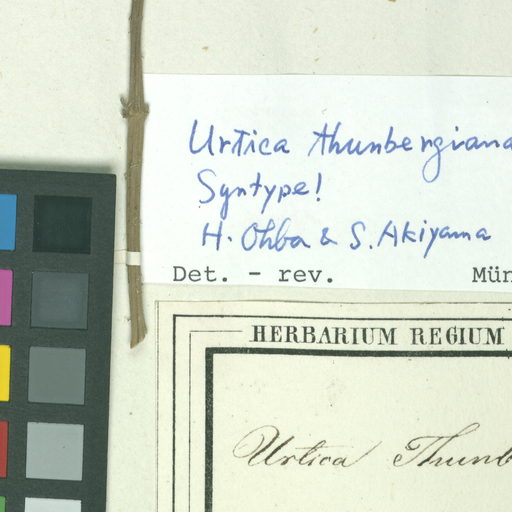 Urtica thunbergiana
Syntype!
H. Ohba & S. Akiyama
Det. - rev. Mün
HERBARIUM REGIUM
Urtica Thunb